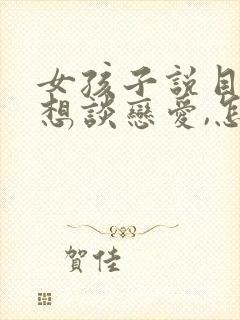 女孩子説目
想談戀愛,怎
賀佳